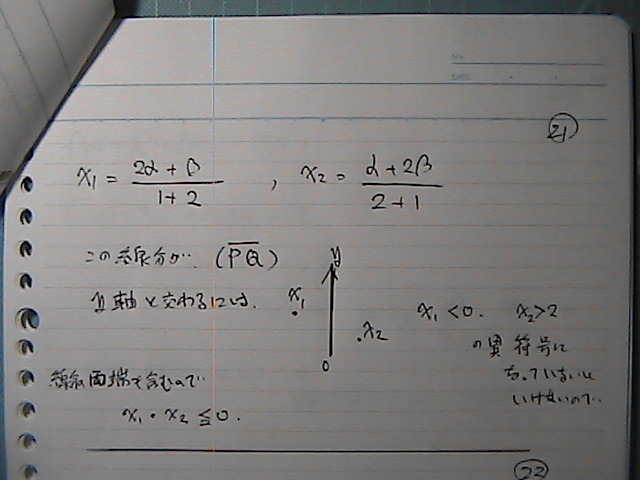 No.
DATE
21
x₁ = (2α + β)/(1 + 2) , x₂ = (α + 2β)/(2 + 1)
この線分が… (P̅Q̅)
y軸と交わるには.
x₁
y
x₂
0
x₁ < 0. x₂ > 2
の異符号に
なっていないと
いけないので…
線分両端も含むので
x₁・x₂ ≦ 0.
22